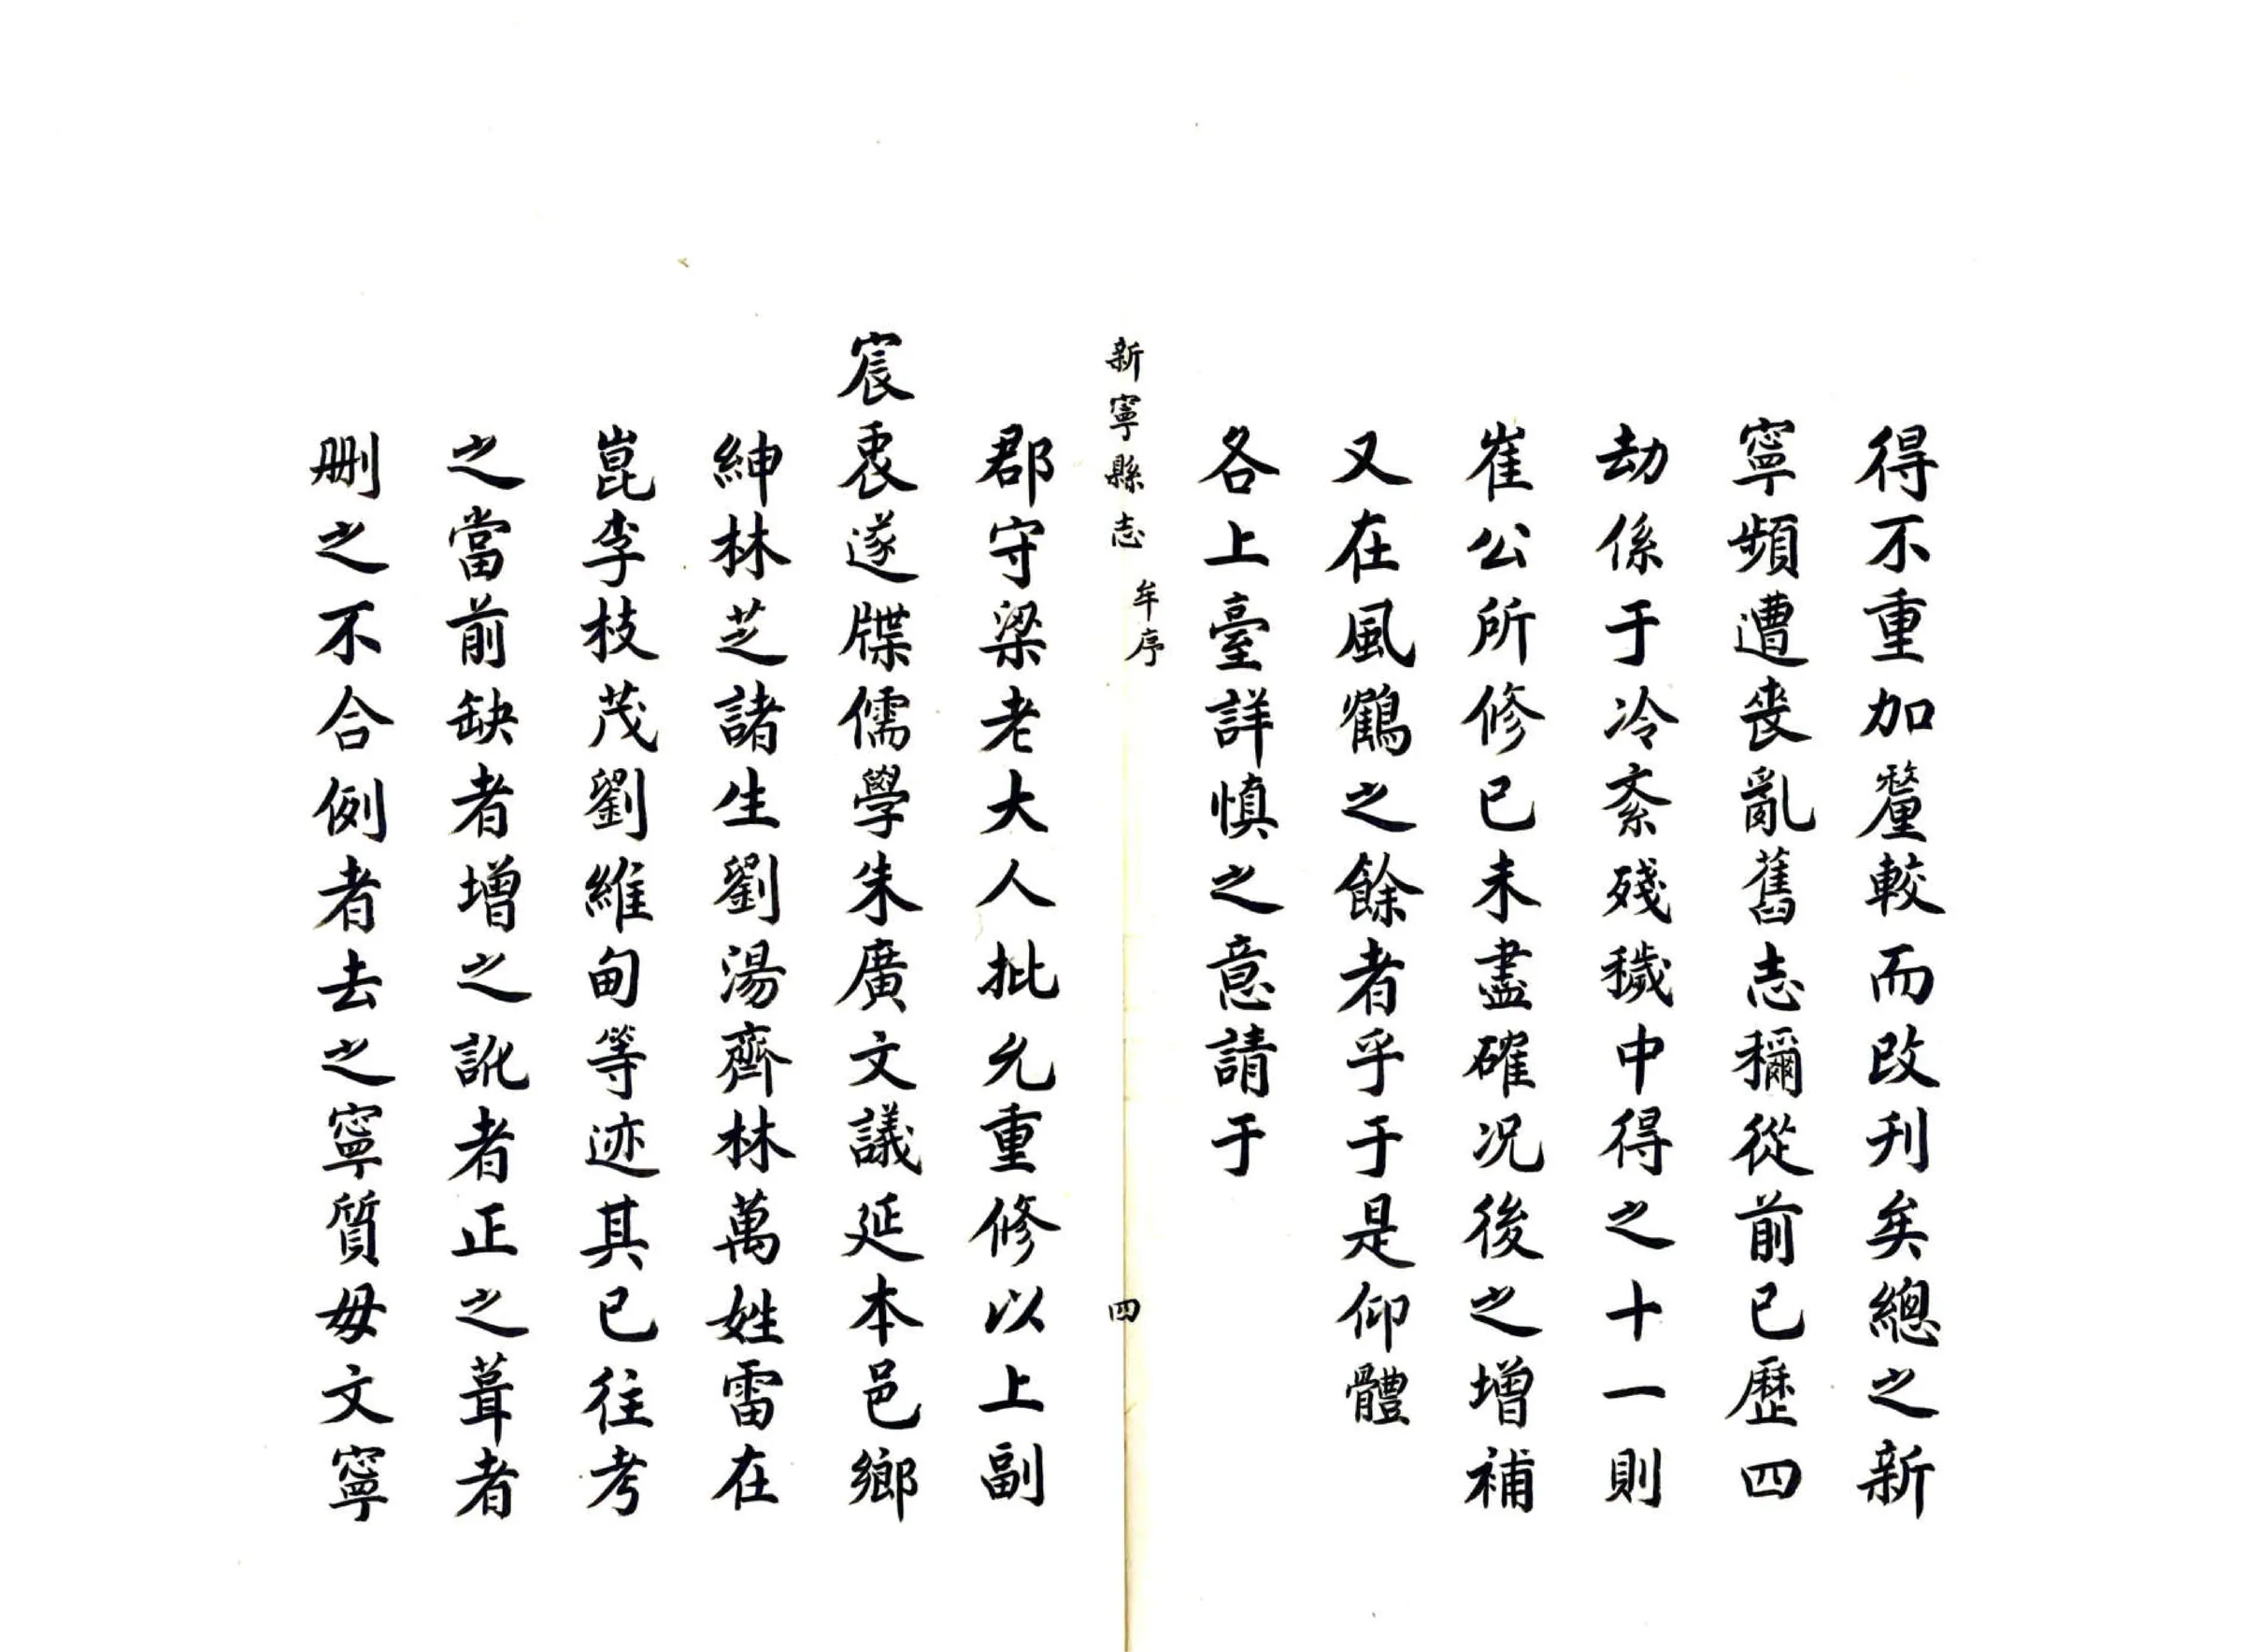 得不重加釐較而改刋矣總之新
寧頻遭丧亂舊志獮從前已歷四
劫係于冷紊殘穢中得之十一則
崔公所修已未盡確况後之增補
又在風鶴之餘者乎于是仰體
各上臺詳慎之意請于
新寧縣志
牟序
四
郡守梁老大人批允重修以上副
宸衷遂牒儒學朱廣文議延本邑鄉
紳林芝諸生劉湯齊林萬姓雷在
崑李枝茂劉維甸等迹其已往考
之當前缺者增之訛者正之葺者
删之不合例者去之寧質毋文寧